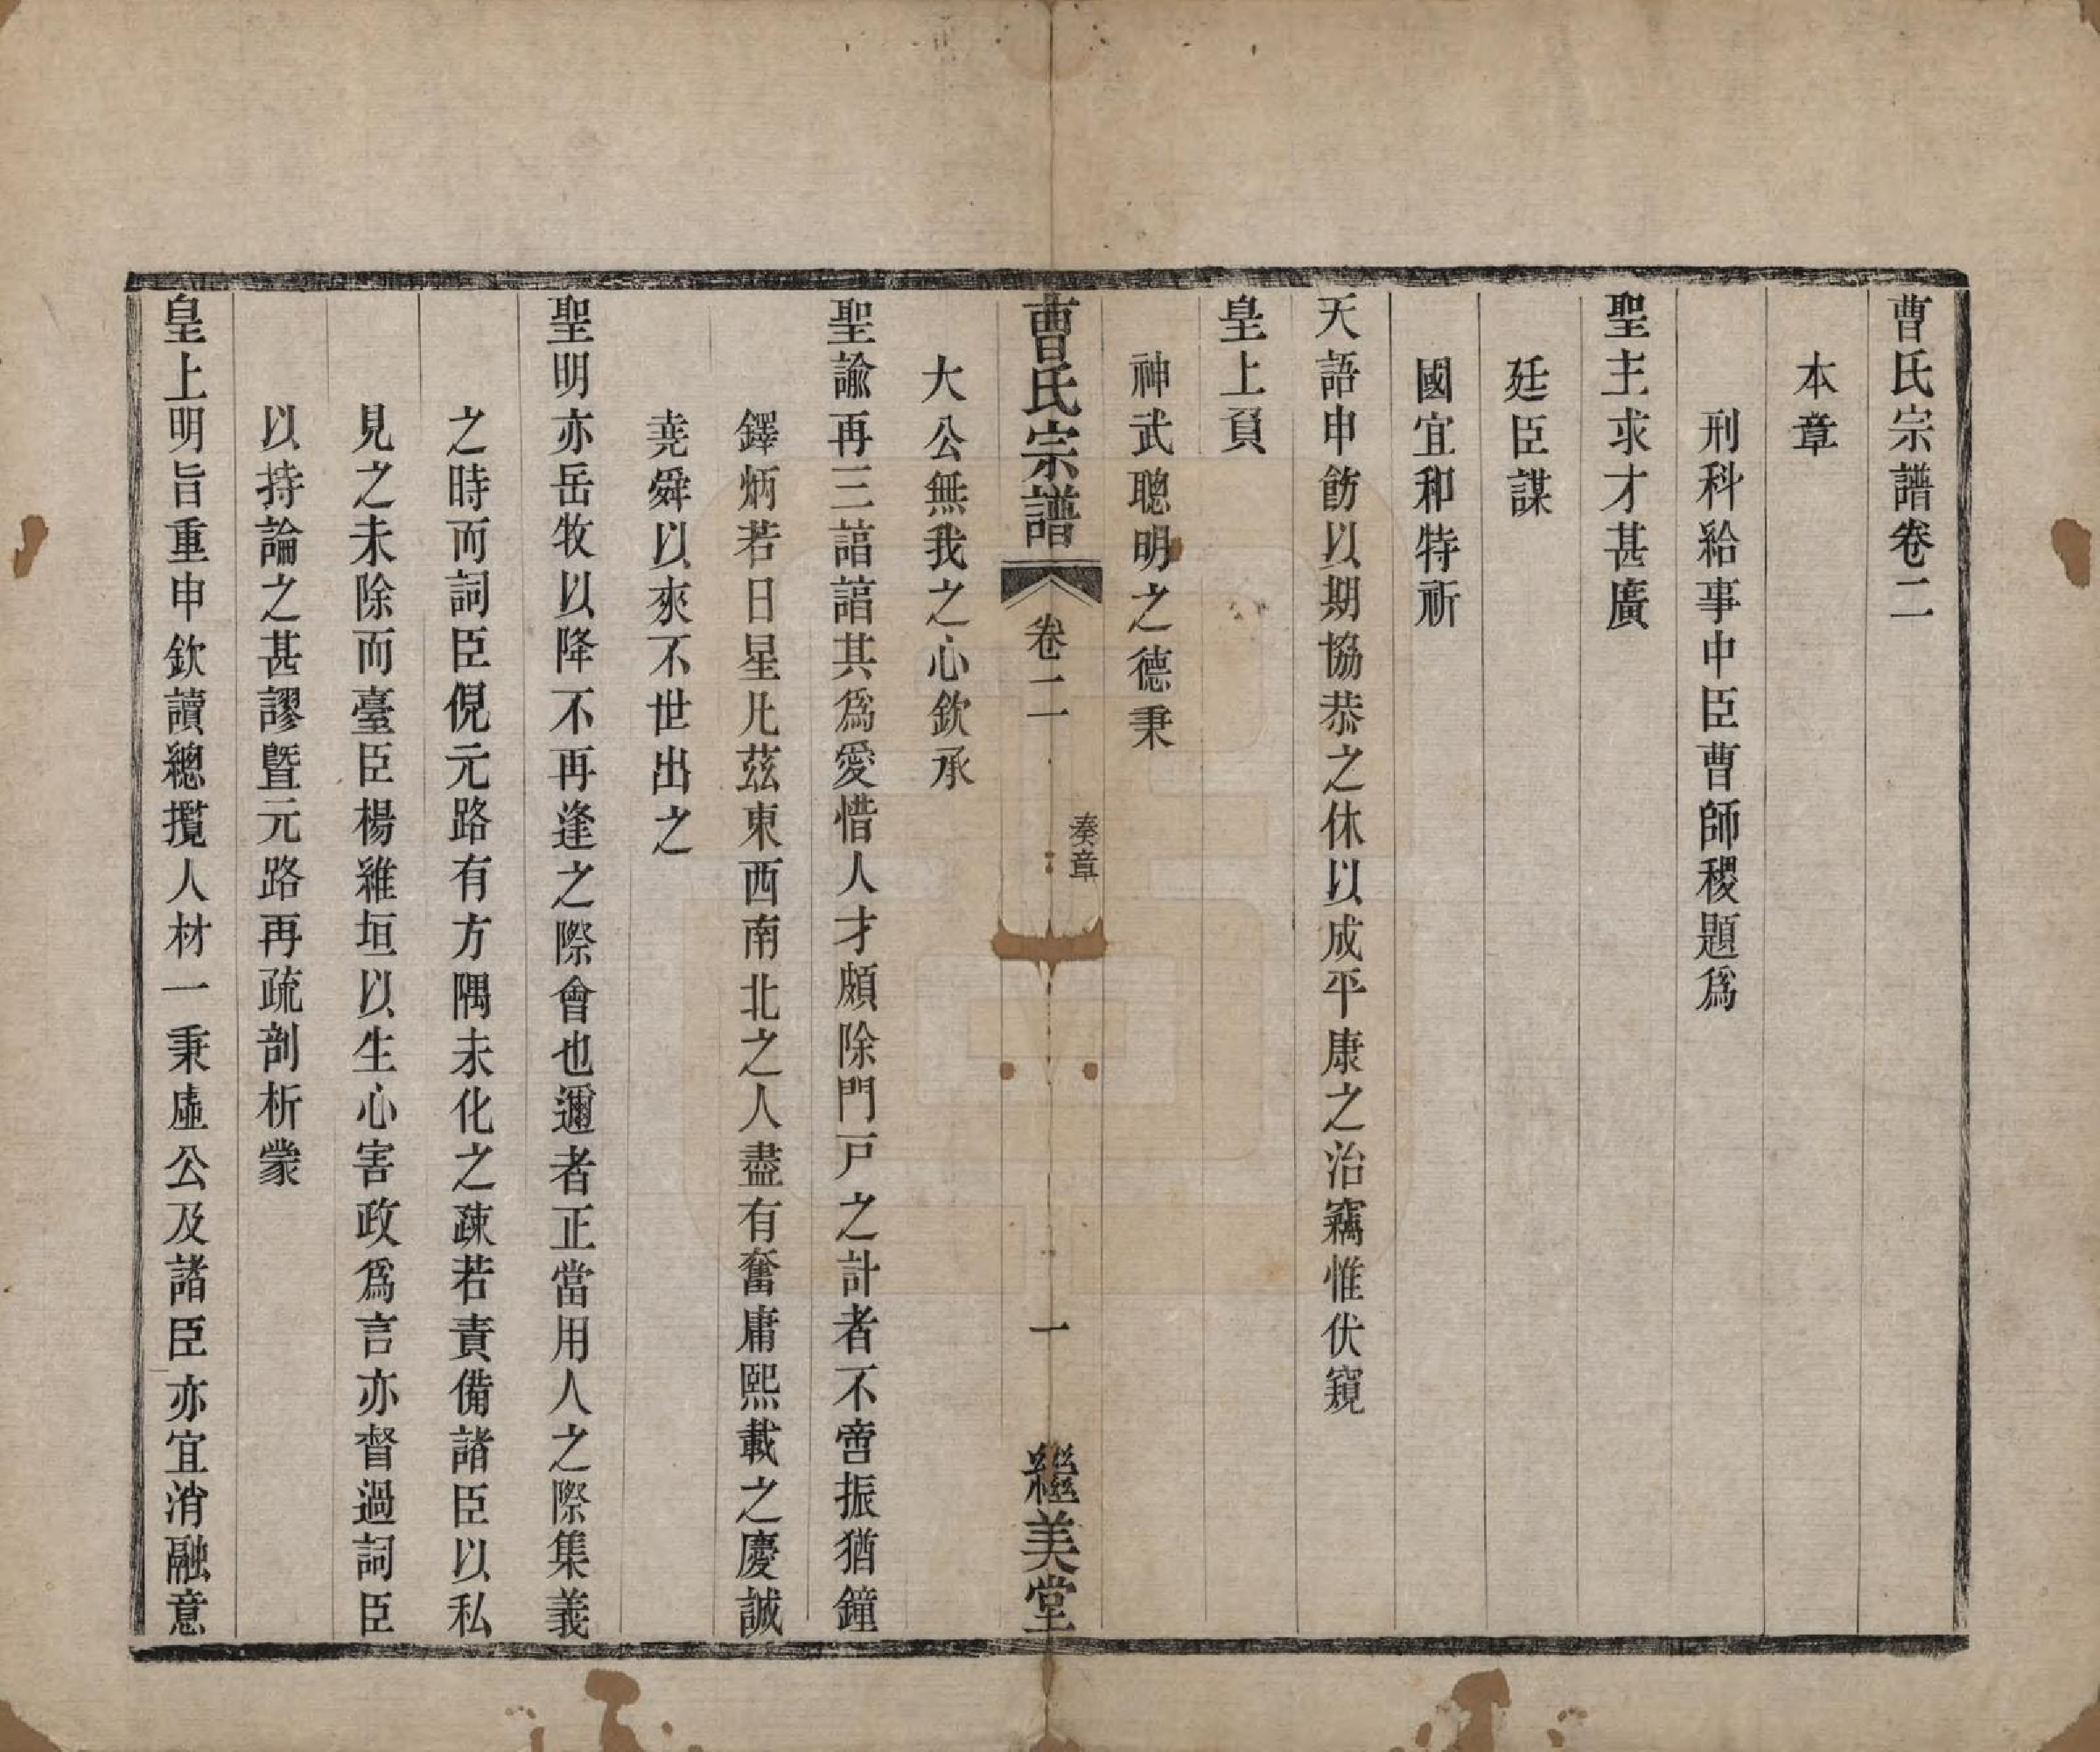 曹氏宗譜卷二
本章
刑科給事中臣曹師稷題爲
聖主求才甚廣
廷臣謀
國宜和特祈
天語申飭以期協恭之休以成平康之治竊惟伏窺
皇上負
神武聰明之德秉
曹氏宗譜
卷二
奏章
一
繼美堂
大公無我之心欽承
聖諭再三諄諄其爲愛惜人才頗除門戸之計者不啻振猶鐘
鐸炳若日星凡茲東西南北之人盡有奮庸熙載之慶誠
堯舜以來不世出之
聖明亦岳牧以降不再逢之際會也邇者正當用人之際集義
之時而詞臣倪元路有方隅未化之疎若責備諸臣以私
見之未除而臺臣楊維垣以生心害政爲言亦督過詞臣
以持論之甚謬暨元路再疏剖析蒙
皇上明旨重申欽讀總攬人材一秉虛公及諸臣亦宜消融意